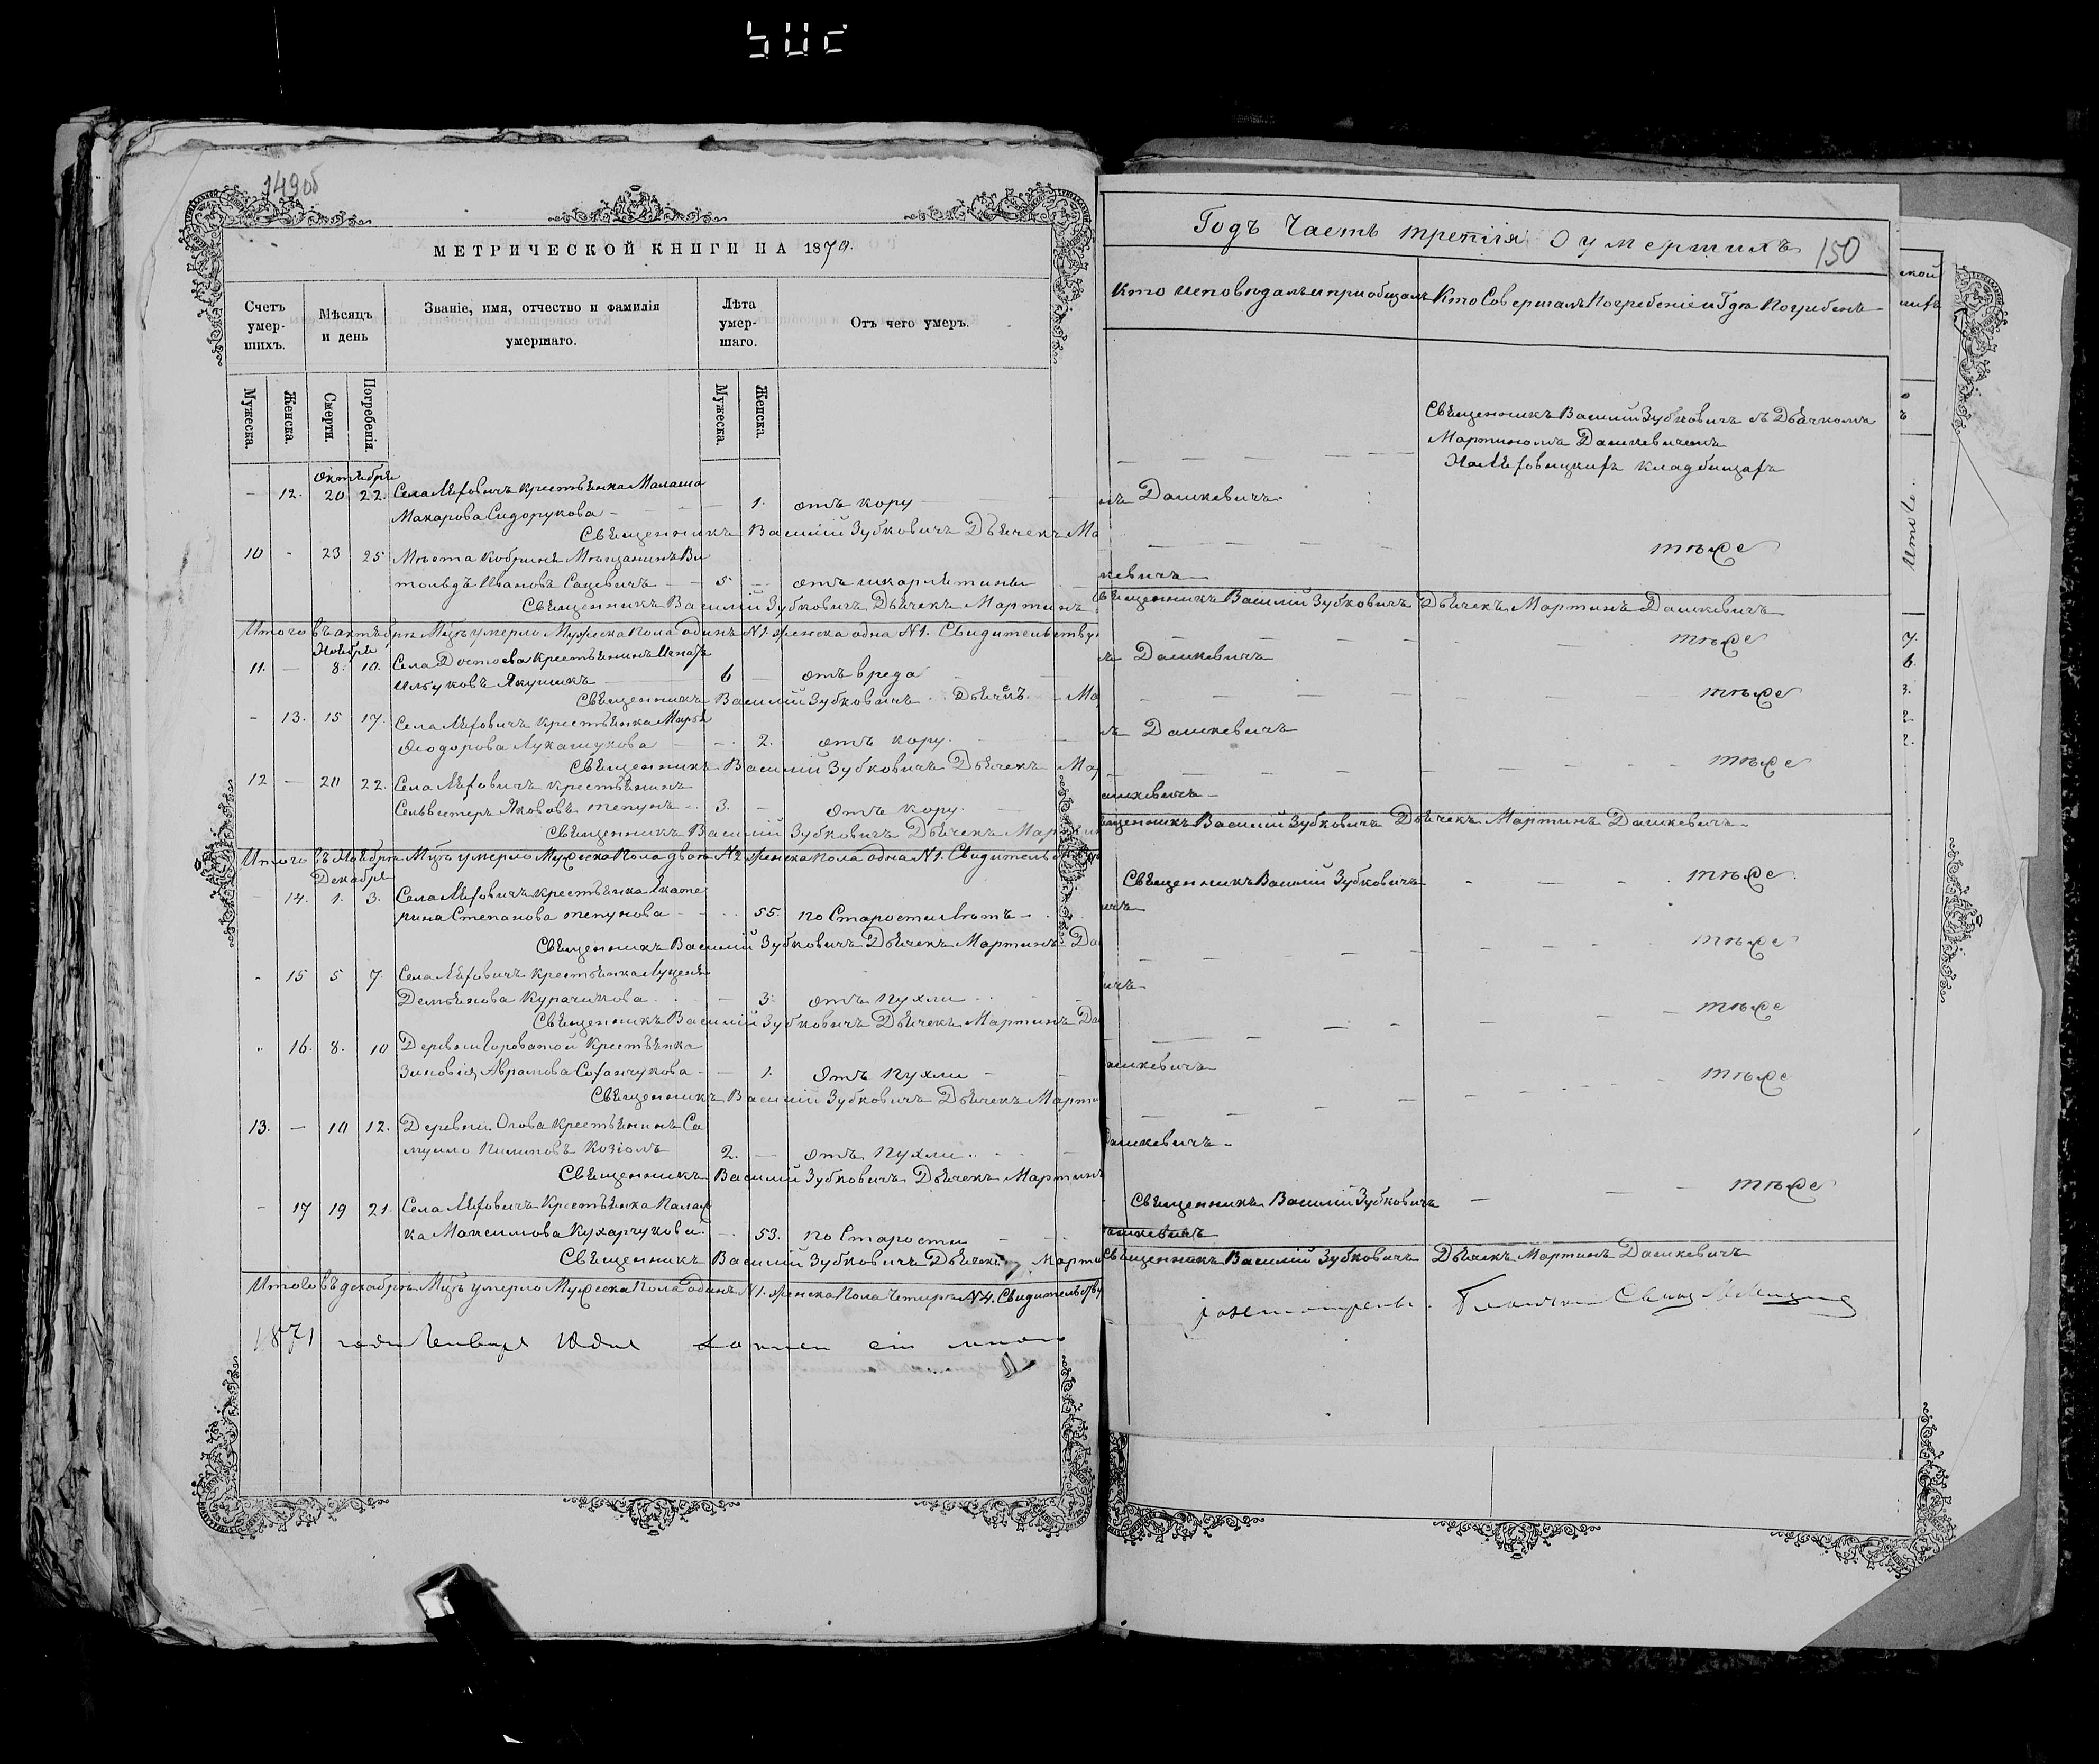 149об
МЕТРИЧЕСКОЙ КНИГИ НА 1870.
Счетъ умер-шихъ.
Мѣсяцъ и день
Званіе, имя, отчество и фамилія умершаго.
Лѣта умер-шаго.
Отъ чего умеръ.
Мужеска.
Женска.
Смерти.
Погребенія.
Мужеска.
Женска.
октября
- 12. 20 22. Села Мховичъ крестьянка Малаша
Макарова Сидорукова - 1. отъ кору
Священникъ Василій Зубковичъ Дьячекъ Ма
10 - 23 25 Мѣста Кобриня Мѣщанинъ Ви
тольдъ Ивановъ Сацевичъ 5 - отъ шкарлятины
Священникъ Василій Зубковичъ Дьячекъ Мартинъ
Итого въ октябрѣ Мцѣ умерло Мужеска пола одинъ N1. женска одна N1. Свидительству
Ноября
11. - 8. 10. Села Достоева крестьянинъ Игнатъ
Якушикъ 6 - отъ вреда
Священникъ Василій Зубковичъ Дьячекъ Ма
- 13. 15 17. Села Мховичъ крестьянка Марья
Ѳеодорова Лукашукова - 2. отъ кору.
Священникъ Василій Зубковичъ Дьячекъ Мар
12 - 20 22. Села Мховичъ крестьянинъ
Сельвестеръ Якововъ тепунъ 3. - отъ кору.
Священникъ Василій Зубковичъ Дьячекъ Мартин
Итого въ Ноябрѣ Мцѣ умерло Мужеска Пола два N2 женска Пола одна N1. Свидительству
Декабря
- 14. 1. 3. Села Мховичъ крестьянка Екате
рина Степанова тепунова - 55. по Старости лѣтъ
Священникъ Василій Зубковичъ Дьячекъ Мартинъ Да
- 15 5 7. Села Мховичъ крестьянка Луцея
Демьянова Курачикова - 3. отъ пухли
Священникъ Василій Зубковичъ Дьячекъ Мартинъ Да
- 16. 8. 10 Деревни Гороватой крестьянка
Зиновія Аврамова - 1. отъ пухли
Священникъ Василій Зубковичъ Дьячекъ Марти
13. - 10 12. Деревни Огова Крестьянинъ Са
муило Пилиповъ Козіолъ 2. - отъ пухли
Священникъ Василій Зубковичъ Дьячекъ Мартинъ
- 17 19 21. Села Мховичъ Крестьянка Палаж
ка Максимова Кухарчукова - 53. по Старости
Священникъ Василій Зубковичъ Дьячекъ Марти
Итого въ декабрѣ Мцѣ умерло Мужеска Пола одинъ N1. женска Пола четыре N4. Свидительству
1871 года Января
Годъ Часть третія О умершихъ
150
Кто исповѣдалъ и приобщалъ
Кто Совершалъ Погребеніе и Гдѣ Погребенъ
Священникъ Василій Зубковичъ съ Дьячкомъ
Мартиномъ Дашкевичемъ
На Мховицкихъ кладбищахъ
нъ Дашкевичъ.
тоже
кевичъ
Священникъ Василій Зубковичъ Дьячекъ Мартинъ Дашкевичъ
тоже
ъ Дашкевичъ
тоже
ъ Дашкевичъ
тоже
ашкевичъ
щенникъ Василій Зубковичъ Дьячекъ Мартинъ Дашкевичъ
Священникъ Василій Зубковичъ тоже
ичъ
тоже
ичъ
тоже
ашкевичъ
тоже
Дашкевичъ
Священникъ Василій Зубковичъ тоже
ашкевичъ
Священникъ Василій Зубковичъ Дьячекъ Мартинъ Дашкевичъ
Итого
7.
6.
3.
2.
2.